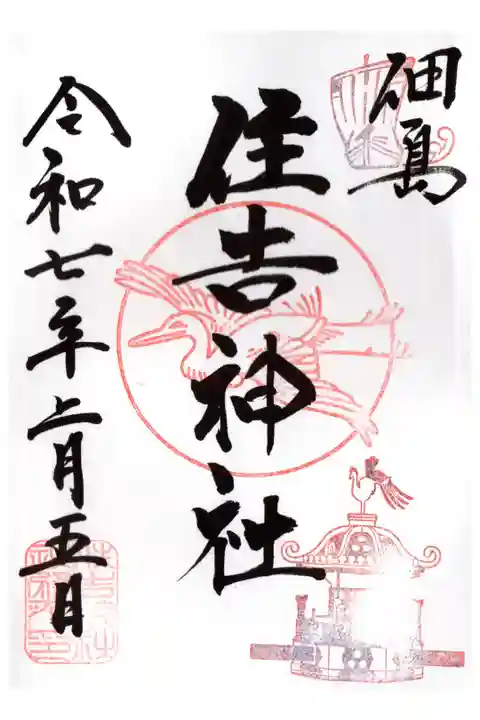 佃島
住吉神社
令和七年月五日